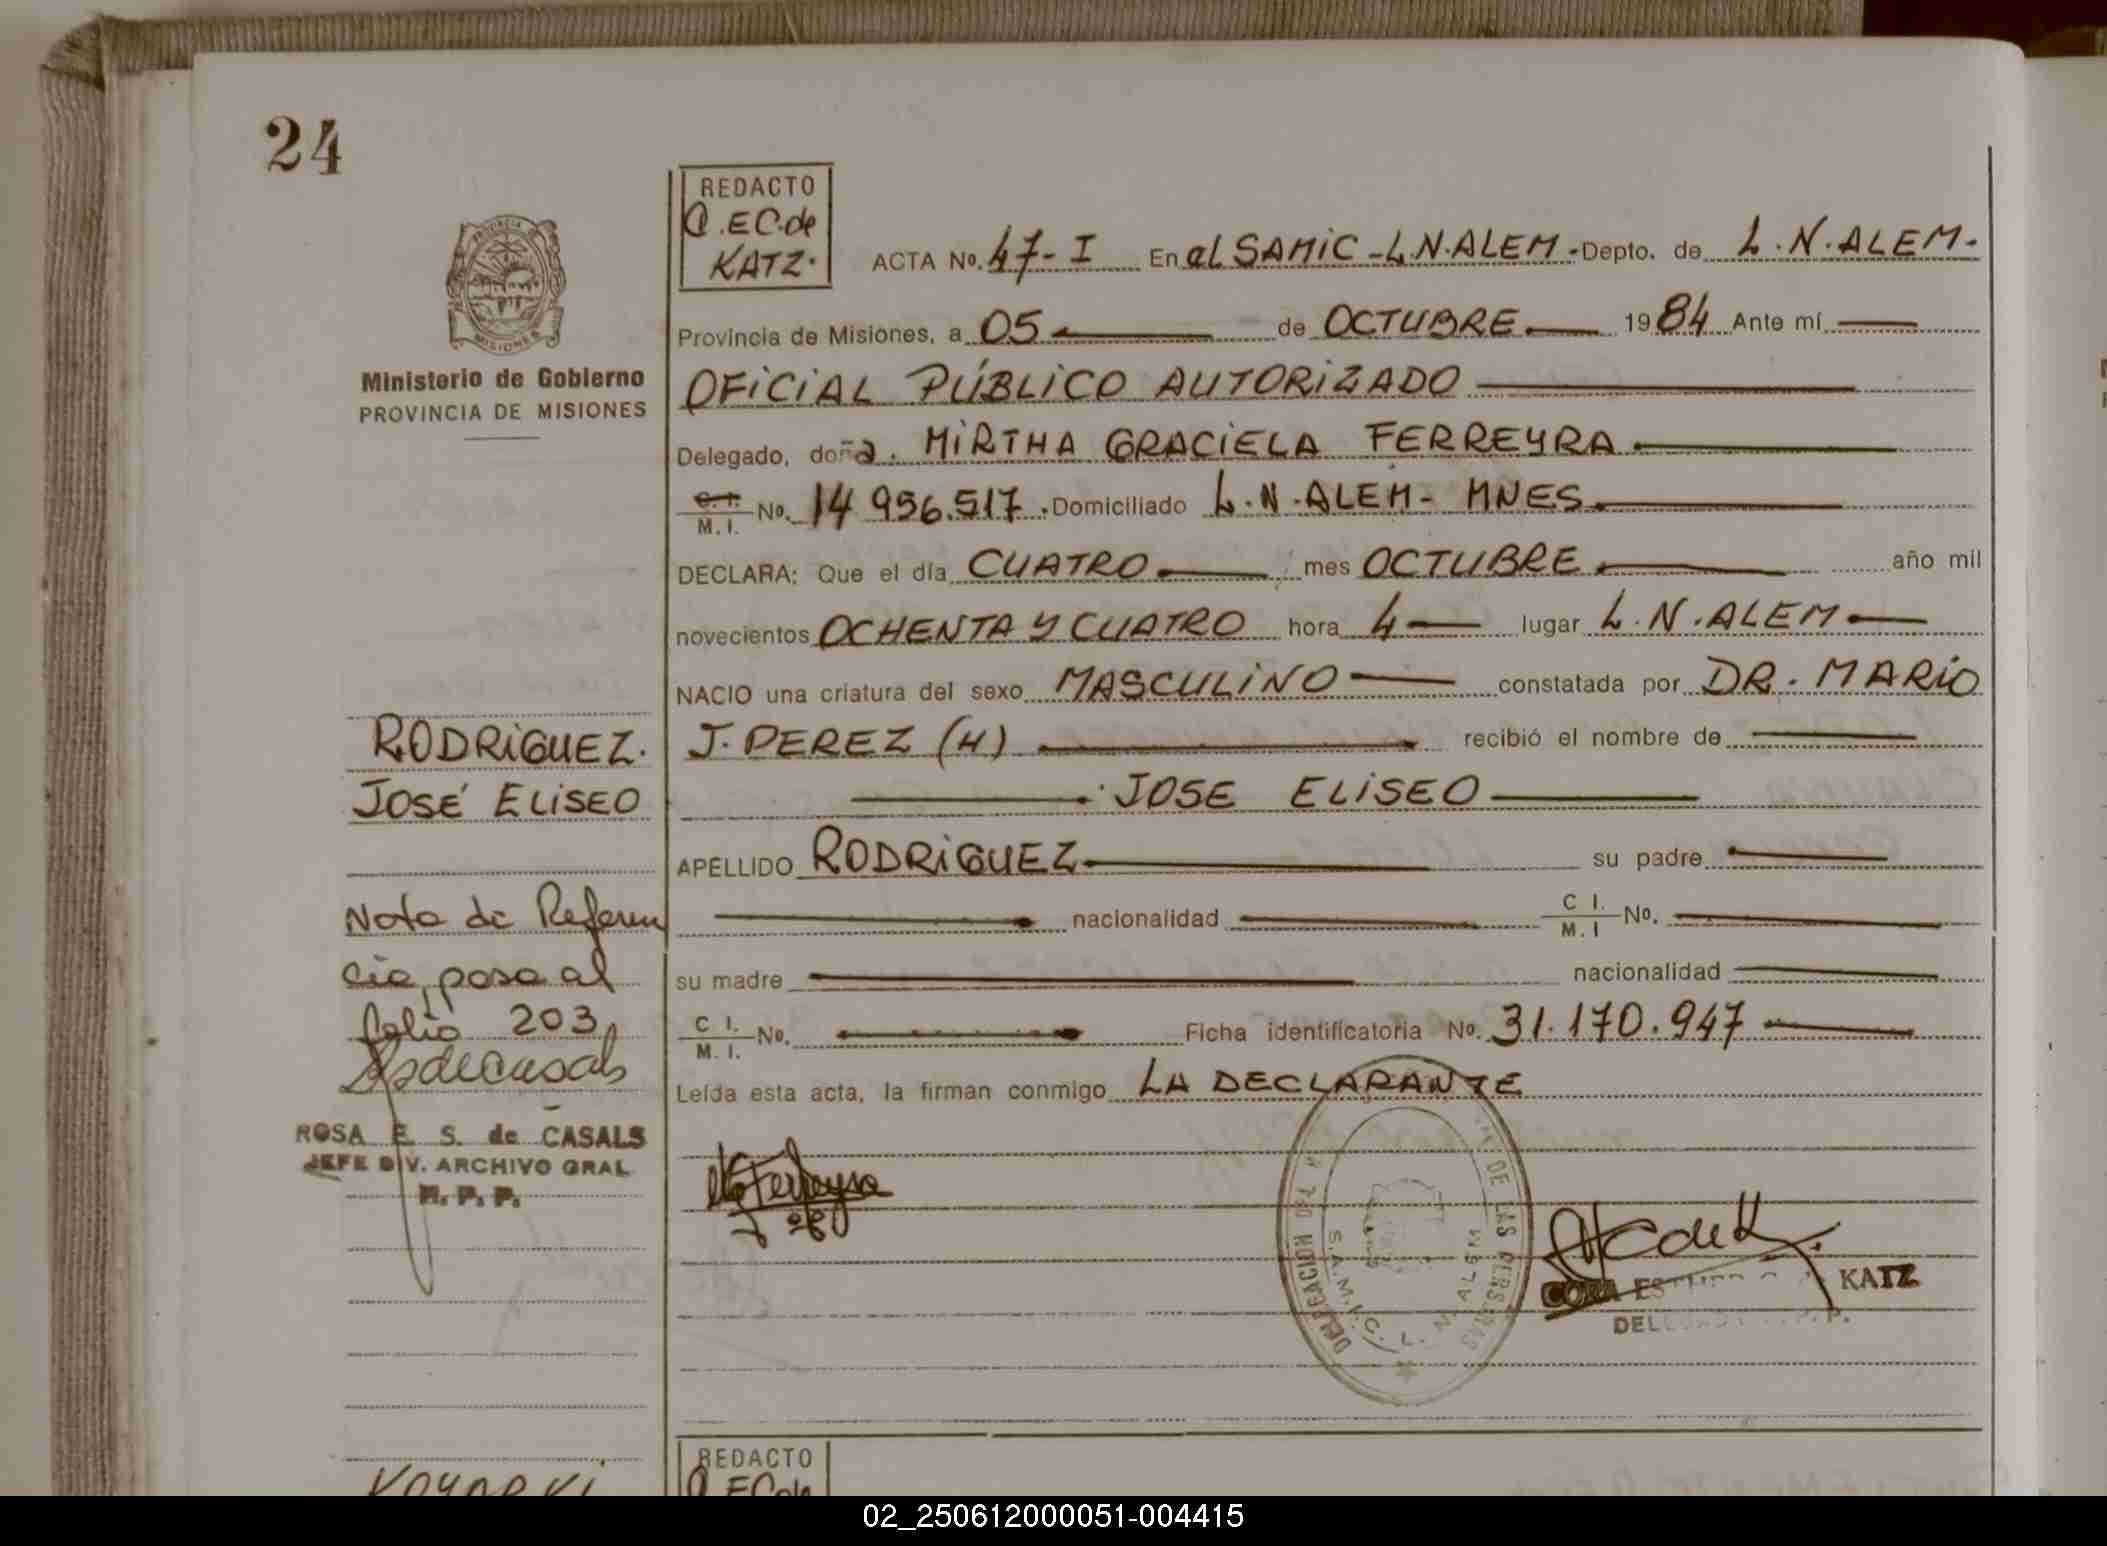 24
REDACTO
C.EC.de
KATZ.
ACTA No. 47-I En el SAMIC-L.N.ALEM.-Depto. de L.N.ALEM.
PROVINCIA DE
MISIONES
Provincia de Misiones, a 05 de OCTUBRE 1984 Ante mí
Ministerio de Gobierno
PROVINCIA DE MISIONES
OFICIAL PÚBLICO AUTORIZADO
Delegado, doña. MIRTHA GRACIELA FERREYRA
C.I.
M.I. No. 14 956.517. Domiciliado L.N.ALEM- MNES
DECLARA: Que el día CUATRO mes OCTUBRE año mil
novecientos OCHENTA Y CUATRO hora 4 lugar L.N.ALEM
NACIO una criatura del sexo MASCULINO constatada por DR. MARIO
J. PEREZ (H) recibió el nombre de
JOSE ELISEO
APELLIDO RODRIGUEZ su padre
nacionalidad C I.
M. I No.
su madre nacionalidad
C I.
M. I. No. Ficha identificatoria No. 31.170.947
Leída esta acta, la firman conmigo LA DECLARANTE
RODRIGUEZ.
JOSÉ ELISEO
Nota de Referen
cia, pasa al
folio 203
ROSA E. S. de CASALS
JEFE DIV. ARCHIVO GRAL
R. P. P.
Ferreyra
DELEGACION DEL DE LAS PERSONAS
S.A.M.I.C. L. N. ALEM
CORA KATZ
REDACTO
C.EC.de
02_250612000051-004415